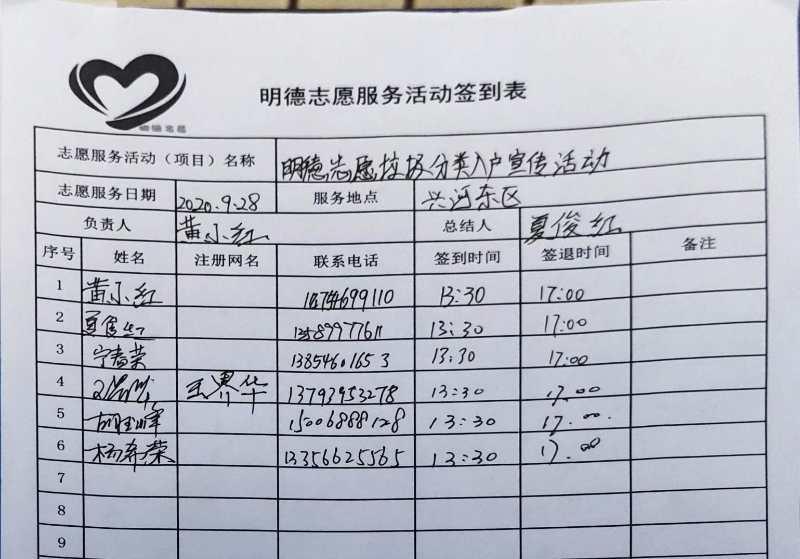 明德志愿
明德志愿服务活动签到表
志愿服务活动（项目）名称 明德志愿垃圾分类入户宣传活动
志愿服务日期 2020.9.28 服务地点 兴河东区
负责人 黄小红 总结人 夏俊红
序号 姓名 注册网名 联系电话 签到时间 签退时间 备注
1 黄小红 13:30 17:00
2 夏俊红 13589977611 13:30 17:00
3 宁春荣 13854601653 13:30 17:00
4 13793953278 13:30 17.00
5 15006888128 13:30 17.00.
6 杨奔荣 13356625565 13:30 17.00
7
8
9